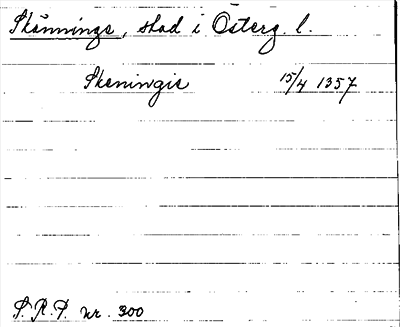 Skänninge, stad i Österg. l.
Skeningis 15/4 1357
S.R.P. nr. 300